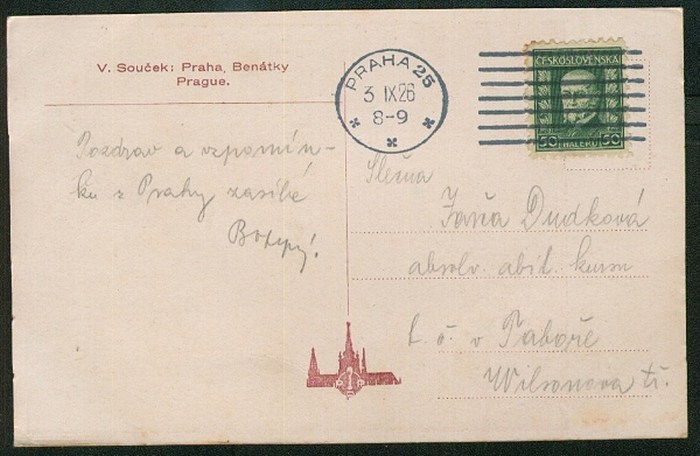 V. Souček: Praha, Benátky
Prague.
PRAHA 25
3 IX 26
8-9
ČESKOSLOVENSKA
50 HALÉŘŮ 50
Pozdrav a vzpomín-
ku z Prahy zasílá
Slečna
Jarča Dudková
absolv. abit. kursu
t. č. v Táboře
Wilsonova tř.